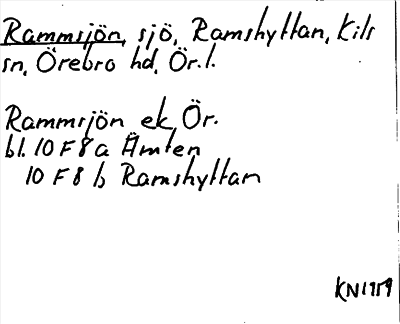 Rammsjön, sjö, Ramshyttan, Kils
sn, Örebro hd, Ör.l.
Rammsjön ek Ör.
bl. 10 F 8 a Ämten
10 F 8 b Ramshyttan
KN1959